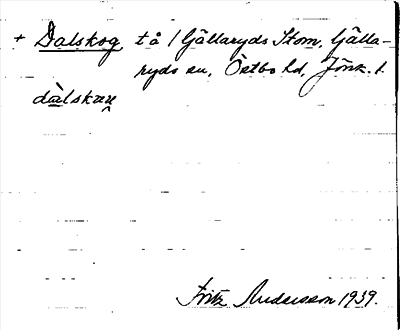 + Dalskog, tå / Gällaryds Stom, Gälla-
ryds sn, Östbo hd, Jönk. l.
dàlskau̯
Fritz Andersson 1939.